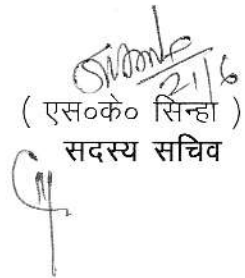 21/6
( एस०के० सिन्हा )
सदस्य सचिव